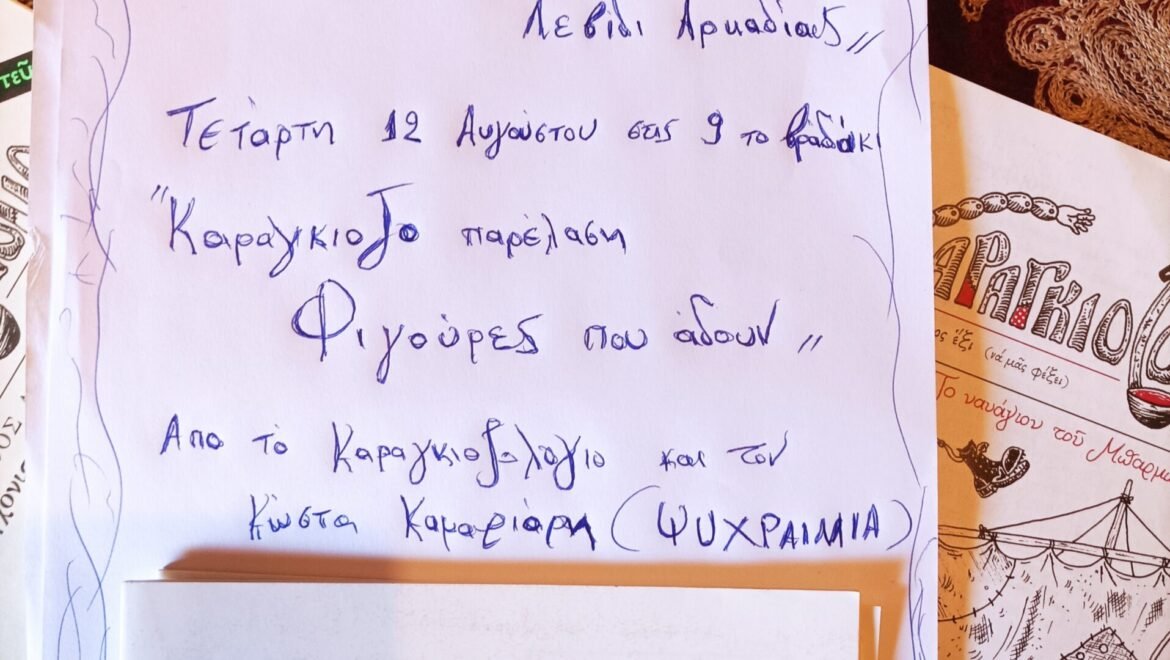 Λεβίδι Αρκαδίας,,
Τετάρτη 12 Αυγούστου στις 9 το βραδάκι
"Καραγκιοζο παρέλαση
Φιγούρες που άδουν,,
Απο το Καραγκιοζολόγιο και τον
Κώστα Καμαριάρη (ΨΥΧΡΑΙΜΙΑ)
ΑΡΑΓΚΙΟΖ
ος ἕξι (νά μᾶς φέξει)
Το ναυάγιον τοῦ Μπαρμ
τεῦ